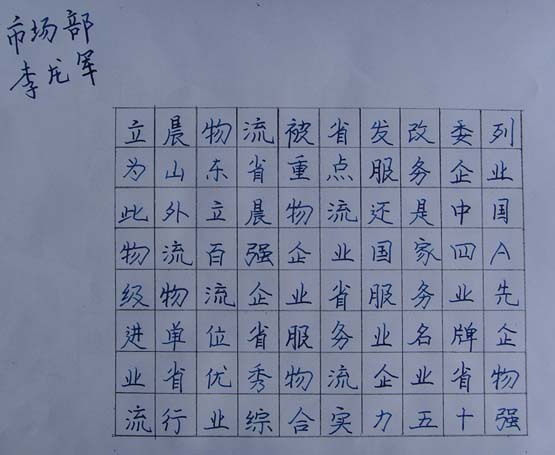 市场部
李龙军
立晨物流被省发改委列
为山东省重点服务企业
此外立晨物流还是中国
物流百强企业国家四A
级物流企业省服务业先
进单位省服务业名牌企
业省优秀物流企业省物
流行业综合实力五十强